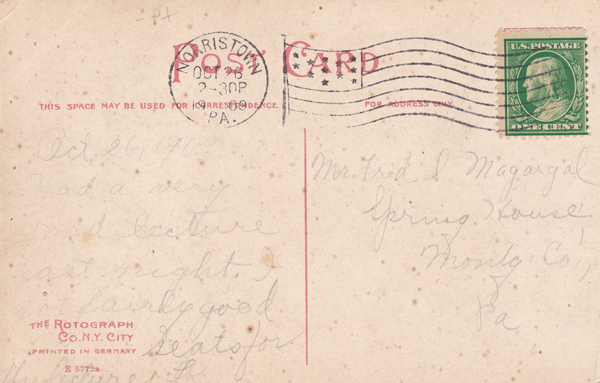 POST CARD
NORRISTOWN
OCT 26
2-30P
1909
PA.
U.S. POSTAGE
ONE CENT
THIS SPACE MAY BE USED FOR CORRESPONDENCE.
FOR ADDRESS ONLY.
Oct. 26, 1909
Had a very
good lecture
last night. I
got fairly good
seats for
Mr. Fred S Magargal
Spring House
Montg. Co.,
Pa
THE ROTOGRAPH
CO. N.Y. CITY
PRINTED IN GERMANY
E 5772a